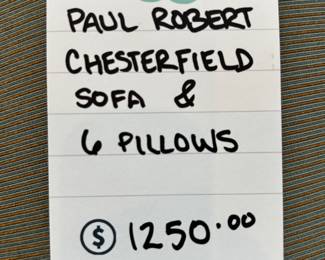 PAUL ROBERT
CHESTERFIELD
SOFA &
6 PILLOWS
$ 1250.00